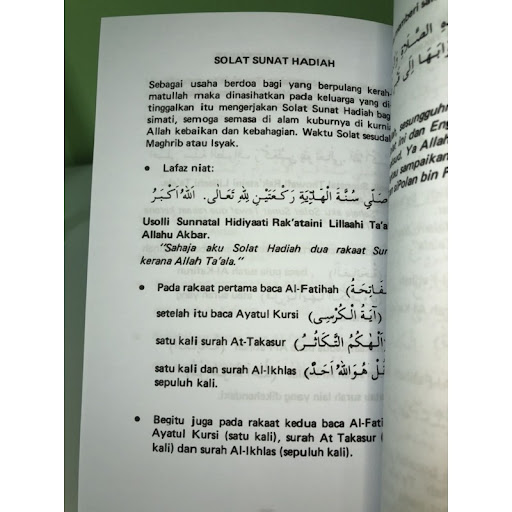 SOLAT SUNAT HADIAH
Sebagai usaha berdoa bagi yang berpulang kerah-
matulah maka dinasihatkan pada keluarga yang di-
tinggalkan itu mengerjakan Solat Sunat Hadiah bag
simati, semoga semasa di alam kuburnya di kurnia
Allah kebaikan dan kebahagian. Waktu Solat sesudah
Maghrib atau Isyak.
• Lafaz niat:
صَلِّي سُنَّةَ الْهَدِيَّةِ رَكْعَتَيْنِ لِلّٰهِ تَعَالَى. اَللهُ اَكْبَرُ
Usolli Sunnatal Hidiyaati Rak'ataini Lillaahi Ta'a
Allahu Akbar.
"Sahaja aku Solat Hadiah dua rakaat Sun
kerana Allah Ta'ala."
• Pada rakaat pertama baca Al-Fatihah (فَاتِحَةُ
setelah itu baca Ayatul Kursi (آيَةُ الْكُرْسِى)
satu kali surah At-Takasur (اَلْهٰكُمُ التَّكَاثُرُ
satu kali dan surah Al-Ikhlas (قُلْ هُوَ اللهُ اَحَدٌ)
sepuluh kali.
• Begitu juga pada rakaat kedua baca Al-Fati
Ayatul Kursi (satu kali), surah At Takasur (
kali) dan surah Al-Ikhlas (sepuluh kali).
emberi sa
sesungguhn
ini dan Eng
Ya Allah
sampaikan
Polan bin